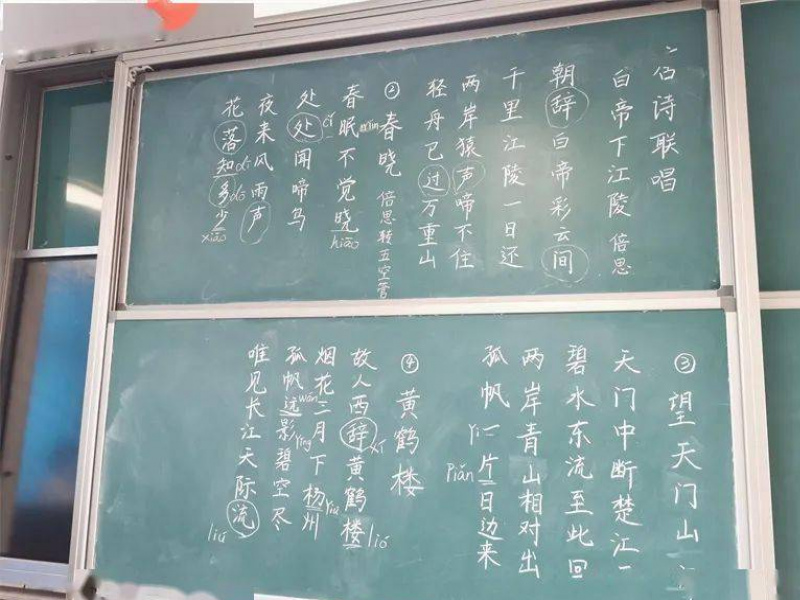 古诗联唱
白帝下江陵 倍思
朝辞白帝彩云间
千里江陵一日还
两岸猿声啼不住
轻舟已过万重山
② 春晓 倍思转五空管
春眠不觉晓 hiǎo
处处闻啼鸟 cǐ
夜来风雨声
花落知多少 xiǎo
③ 望天门山
天门中断楚江
碧水东流至此回
两岸青山相对出
孤帆一片日边来 yi piǎn
④ 黄鹤楼
故人西辞黄鹤楼 xí lió
烟花三月下杨州
孤帆远影碧空尽 wǎn yǐng
唯见长江天际流 liú